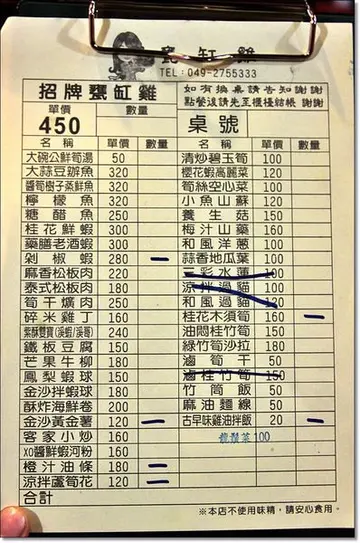 甕缸雞
TEL:049-2755333
招牌甕缸雞
單價 數量
450
如有換桌請告知謝謝
點餐後請先至櫃檯結帳 謝謝
桌號
名稱 單價 數量 名稱 單價 數量
大碗公鮮筍湯 50 清炒碧玉筍 100
大蒜豆辦魚 320 櫻花蝦高麗菜 120
醬筍樹子蒸鮮魚 320 筍絲空心菜 100
檸檬魚 320 小魚山蘇 120
糖醋魚 250 養生菇 150
桂花鮮蝦 300 梅汁山藥 160
藥膳老酒蝦 300 和風洋蔥 100
剁椒蝦 280 蒜香地瓜葉 100
麻香松板肉 220 三彩水蓮 100
泰式松板肉 180 涼拌過貓 100
筍干爌肉 250 和風過貓 100
碎米雞丁 160 桂花木須筍 160
紫酥雙寶(溪蝦/溪哥) 240 油悶桂竹筍 150
鐵板豆腐 150 綠竹筍沙拉 180
芒果牛柳 180 滷筍干 50
鳳梨蝦球 150 滷桂竹筍 150
金沙拌蝦球 180 竹筒飯 50
酥炸海鮮卷 200 麻油麵線 50
金沙黃金薯 120 古早味雞油拌飯 20
客家小炒 160 龍鬚菜100
XO醬鮮蝦河粉 160
橙汁油條 180
涼拌蘆筍花 120
合計
※本店不使用味精,請安心食用。